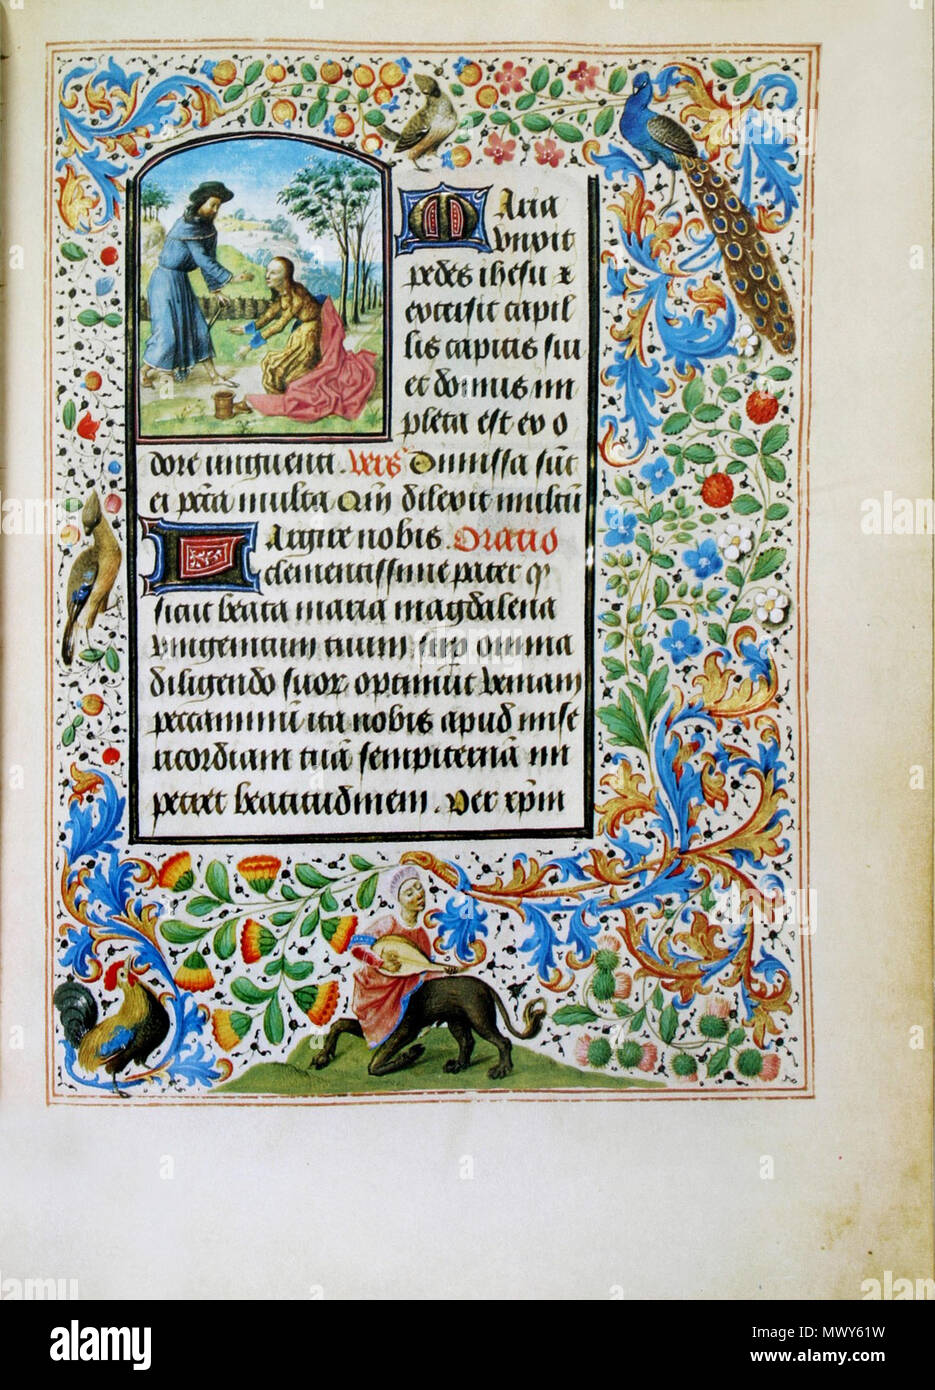 Maria
vnxit
pedes ihesu &
extersit capil
lis capitis sui
et domus im
pleta est ex o
dore unguenti. Vers Dimissa sūt
ei pctā multa Qm̄ dilexit multū
Largire nobis. Oratio
clementissime pater q̄
sicut beata maria magdalena
vnigenitum tuum sup omnia
diligendo suor optinuit veniam
peccaminū ita nobis apud mise
ricordiam tuā sempiternā im
petret beatitudinem. Per xp̄m
alamy
alamy stock photo
Image ID: MWY61W
www.alamy.com